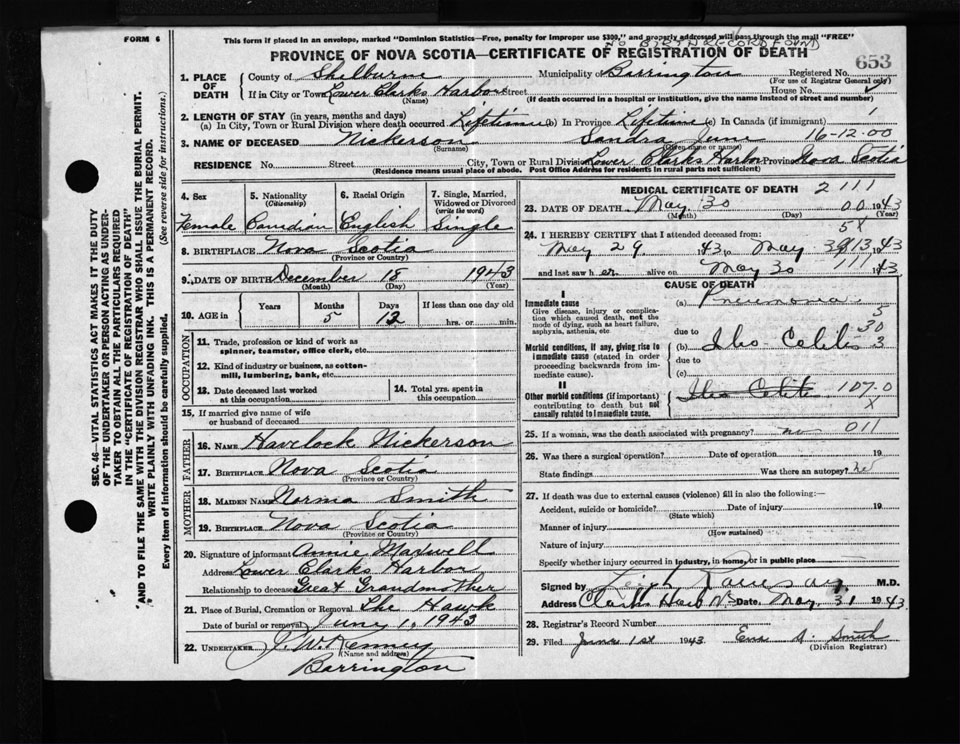 FORM 6
This form if placed in an envelope, marked "Dominion Statistics—Free, penalty for improper use $300," and properly addressed will pass through the mail "FREE"
NO BIRTH RECORD FOUND
PROVINCE OF NOVA SCOTIA—CERTIFICATE OF REGISTRATION OF DEATH
653
1. PLACE OF DEATH
County of Shelburne Municipality of Barrington Registered No.
(For use of Registrar General only)
If in City or Town Lower Clarks Harbor Street House No.
(Name) (If death occurred in a hospital or institution, give the name instead of street and number)
2. LENGTH OF STAY (in years, months and days)
(a) In City, Town or Rural Division where death occurred Lifetime (b) In Province Lifetime (c) In Canada (if immigrant) 1
3. NAME OF DECEASED Nickerson Sandra June 16-12.00
(Surname) (Given name or names)
RESIDENCE No. Street City, Town or Rural Division Lower Clarks Harbor Province Nova Scotia
(Residence means usual place of abode. Post Office Address for residents in rural parts not sufficient)
4. Sex
Female
5. Nationality
(Citizenship)
Canadian
6. Racial Origin
English
7. Single, Married, Widowed or Divorced
(write the word)
Single
8. BIRTHPLACE Nova Scotia
(Province or Country)
9. DATE OF BIRTH December 18 1943
(Month) (Day) (Year)
10. AGE in
Years
Months
5
Days
12
If less than one day old
hrs. or min.
OCCUPATION
11. Trade, profession or kind of work as
spinner, teamster, office clerk, etc.
12. Kind of industry or business, as cotton-
mill, lumbering, bank, etc.
13. Date deceased last worked
at this occupation
14. Total yrs. spent in
this occupation
15. If married give name of wife
or husband of deceased
FATHER
16. NAME Havelock Nickerson
17. BIRTHPLACE Nova Scotia
(Province or Country)
MOTHER
18. MAIDEN NAME Norma Smith
19. BIRTHPLACE Nova Scotia
(Province or Country)
20. Signature of informant Annie Maxwell
Address Lower Clarks Harbor
Relationship to deceased Great Grandmother
21. Place of Burial, Cremation or Removal The Hawk
Date of burial or removal June 1, 1943
22. UNDERTAKER J. W. Kenney
(Name and address)
Barrington
MEDICAL CERTIFICATE OF DEATH 2 111
23. DATE OF DEATH May 30 00 1943
(Month) (Day) (Year)
5X
24. I HEREBY CERTIFY that I attended deceased from:
May 29 1943 to May 1943
and last saw her alive on May 30 111 1943
CAUSE OF DEATH
I
Immediate cause
Give disease, injury or complication which caused death, not the mode of dying, such as heart failure, asphyxia, asthenia, etc
(a) Pneumonia
5
due to 30
Morbid conditions, if any, giving rise to immediate cause (stated in order proceeding backwards from immediate cause).
(b) Ileo-Colitis 3
due to
(c)
II
Other morbid conditions (if important) contributing to death but not causally related to immediate cause.
Ileo Colitis 107.0
X
25. If a woman, was the death associated with pregnancy? no 011
26. Was there a surgical operation? Date of operation 19
State findings Was there an autopsy? no
27. If death was due to external causes (violence) fill in also the following:—
Accident, suicide or homicide? Date of injury 19
(State which)
Manner of injury
(How sustained)
Nature of injury
Specify whether injury occurred in industry, in home, or in public place
Signed by Leigh Ramsay M.D.
Address Clarks Harb NS Date May 31 1943
28. Registrar's Record Number
29. Filed June 1st 1943 Smith
(Division Registrar)
SEC. 46—VITAL STATISTICS ACT MAKES IT THE DUTY
OF THE UNDERTAKER OR PERSON ACTING AS UNDER-
TAKER TO OBTAIN ALL THE PARTICULARS REQUIRED
IN THE "CERTIFICATE OF REGISTRATION OF DEATH"
AND TO FILE THE SAME WITH THE DIVISION REGISTRAR WHO SHALL ISSUE THE BURIAL PERMIT.
WRITE PLAINLY WITH UNFADING INK. THIS IS A PERMANENT RECORD.
Every item of information should be carefully supplied. (See reverse side for instructions.)